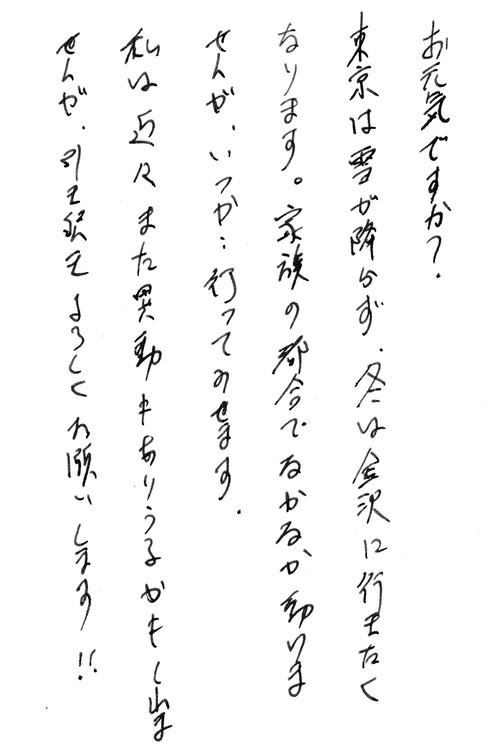 お元気ですか？
東京は雪が降らず、冬は金沢に行きたく
なります。家族の都合でなかなか動けま
せんが、いつか…行ってみせます。
私は近々また異動もありうるかもしれま
せんが、引き続きよろしくお願いします!!